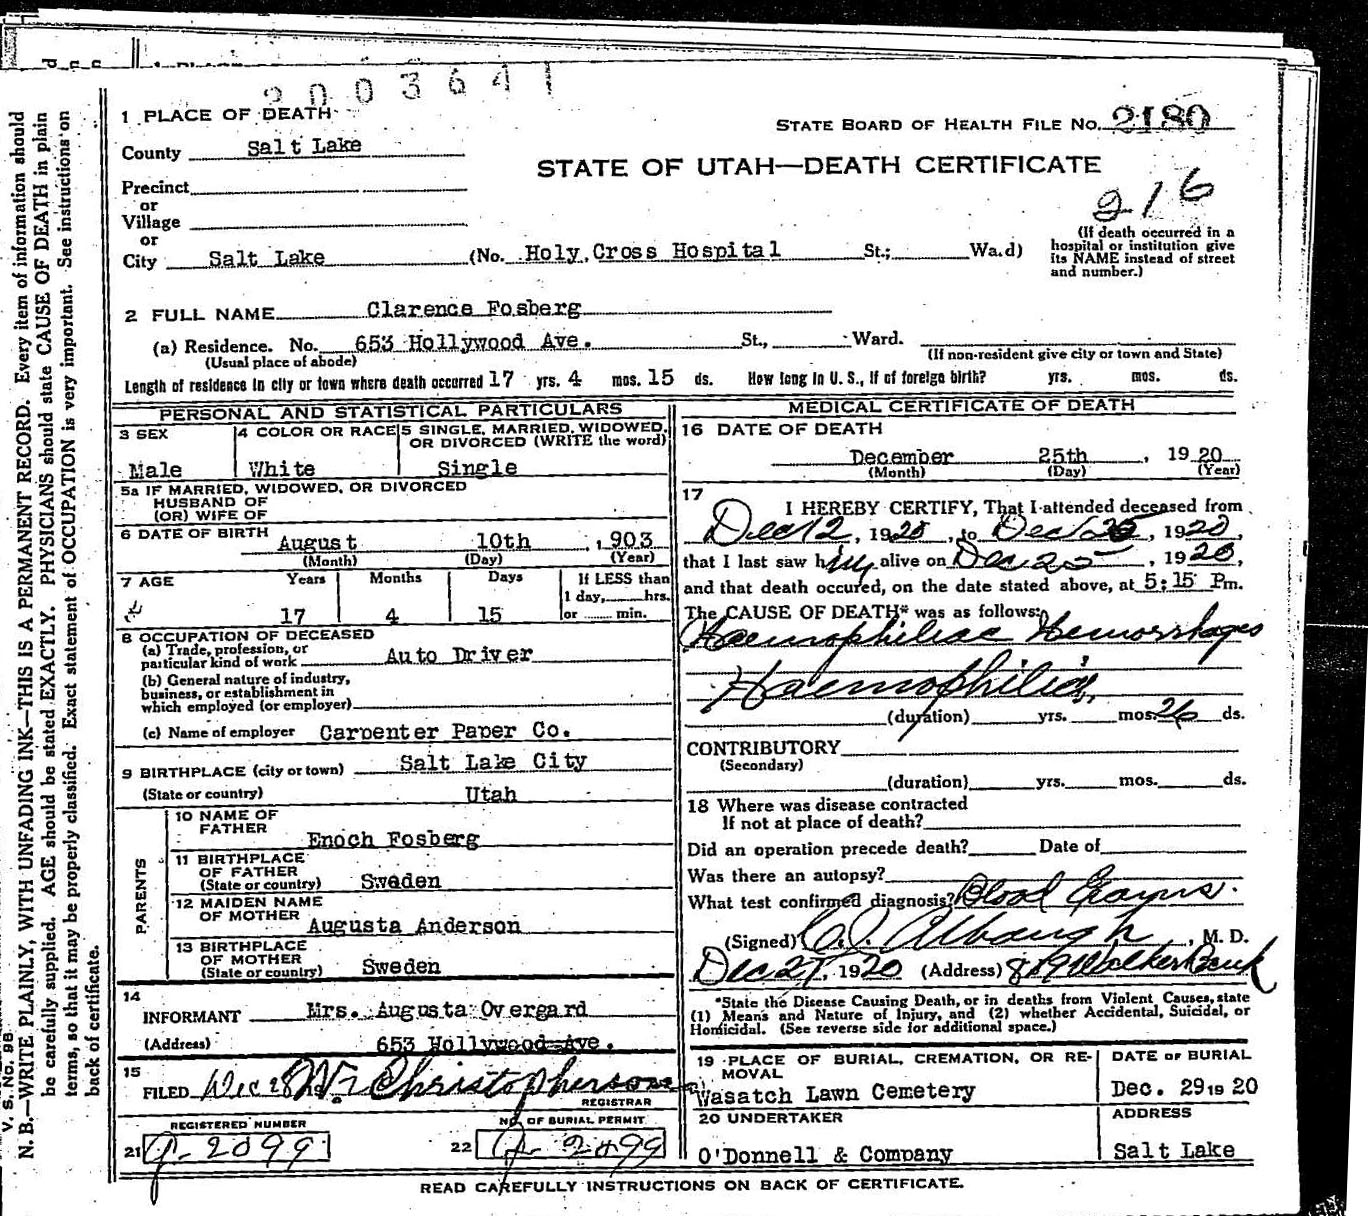 2003641
1 PLACE OF DEATH
STATE BOARD OF HEALTH FILE No. 2180
County Salt Lake
STATE OF UTAH—DEATH CERTIFICATE
216
Precinct
or
Village
or
City Salt Lake (No. Holy Cross Hospital St.; Wa.d)
(If death occurred in a hospital or institution give its NAME instead of street and number.)
2 FULL NAME Clarence Fosberg
(a) Residence. No. 653 Hollywood Ave. St., Ward.
(Usual place of abode) (If non-resident give city or town and State)
Length of residence in city or town where death occurred 17 yrs. 4 mos. 15 ds. How long in U. S., if of foreign birth? yrs. mos. ds.
PERSONAL AND STATISTICAL PARTICULARS
3 SEX
Male
4 COLOR OR RACE
White
5 SINGLE, MARRIED, WIDOWED, OR DIVORCED (WRITE the word)
Single
5a IF MARRIED, WIDOWED, OR DIVORCED
HUSBAND OF
(OR) WIFE OF
6 DATE OF BIRTH August 10th , 1903
(Month) (Day) (Year)
7 AGE Years Months Days If LESS than
1 day, hrs.
17 4 15 or min.
8 OCCUPATION OF DECEASED
(a) Trade, profession, or
particular kind of work Auto Driver
(b) General nature of industry,
business, or establishment in
which employed (or employer)
(c) Name of employer Carpenter Paper Co.
9 BIRTHPLACE (city or town) Salt Lake City
(State or country) Utah
PARENTS
10 NAME OF
FATHER
Enoch Fosberg
11 BIRTHPLACE
OF FATHER
(State or country) Sweden
12 MAIDEN NAME
OF MOTHER
Augusta Anderson
13 BIRTHPLACE
OF MOTHER
(State or country) Sweden
14
INFORMANT Mrs. Augusta Overgard
(Address) 653 Hollywood Ave.
15
FILED Dec 28 Christopherson
REGISTRAR
REGISTERED NUMBER
21 2099
No. OF BURIAL PERMIT
22 2099
MEDICAL CERTIFICATE OF DEATH
16 DATE OF DEATH
December 25th , 1920
(Month) (Day) (Year)
17
I HEREBY CERTIFY, That I attended deceased from
Dec 12, 1920, to Dec 25, 1920,
that I last saw him alive on Dec 25, 1920,
and that death occured, on the date stated above, at 5:15 Pm.
The CAUSE OF DEATH* was as follows:
Haemophiliac Hemorrhages
Haemophilia
(duration) yrs. mos. 26 ds.
CONTRIBUTORY
(Secondary)
(duration) yrs. mos. ds.
18 Where was disease contracted
If not at place of death?
Did an operation precede death? Date of
Was there an autopsy?
What test confirmed diagnosis? Blood Exams.
(Signed) Albaugh, M. D.
Dec 27, 1920 (Address) 819 Walker Bank
*State the Disease Causing Death, or in deaths from Violent Causes, state
(1) Means and Nature of Injury, and (2) whether Accidental, Suicidal, or
Homicidal. (See reverse side for additional space.)
19 PLACE OF BURIAL, CREMATION, OR RE-
MOVAL
Wasatch Lawn Cemetery
DATE OF BURIAL
Dec. 29 1920
20 UNDERTAKER
O'Donnell & Company
ADDRESS
Salt Lake
READ CAREFULLY INSTRUCTIONS ON BACK OF CERTIFICATE.
V. S. No. 98
N. B.—WRITE PLAINLY, WITH UNFADING INK—THIS IS A PERMANENT RECORD. Every item of information should
be carefully supplied. AGE should be stated EXACTLY. PHYSICIANS should state CAUSE OF DEATH in plain
terms, so that it may be properly classified. Exact statement of OCCUPATION is very important. See instructions on
back of certificate.